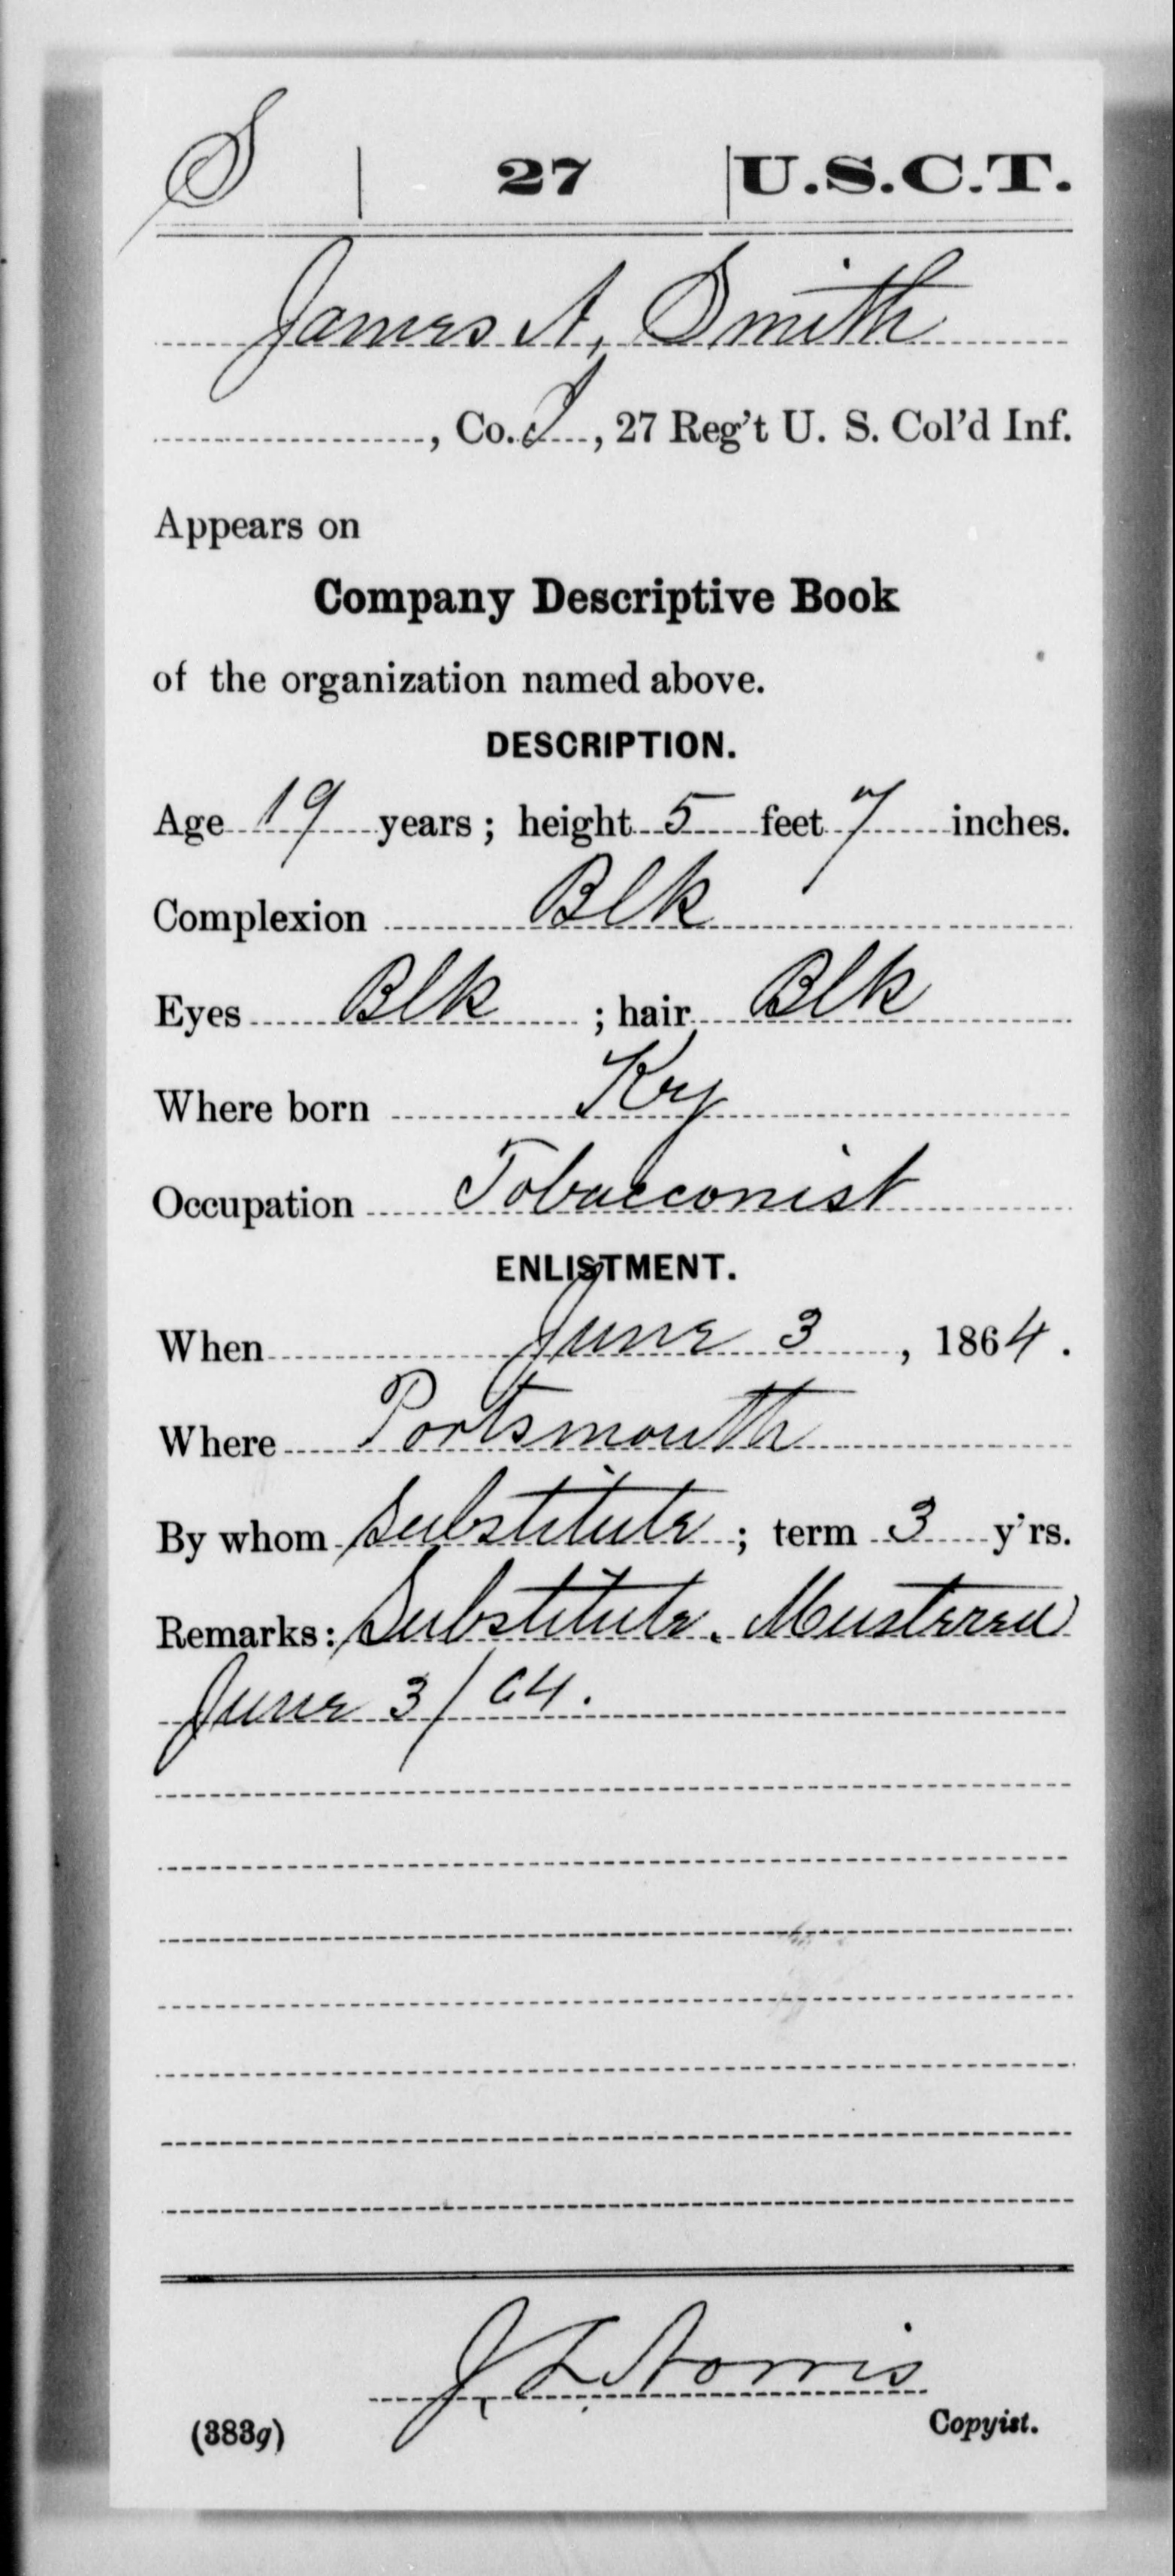 S 27 U.S.C.T.
James A, Smith
, Co. I, 27 Reg't U. S. Col'd Inf.
Appears on
Company Descriptive Book
of the organization named above.
DESCRIPTION.
Age 19 years; height 5 feet 7 inches.
Complexion Blk
Eyes Blk ; hair Blk
Where born Ky
Occupation Tobacconist
ENLISTMENT.
When June 3, 1864.
Where Portsmouth
By whom Substitute; term 3 y'rs.
Remarks: Substitute. Mustered
June 3/64.
J. L. Norris
(383g) Copyist.